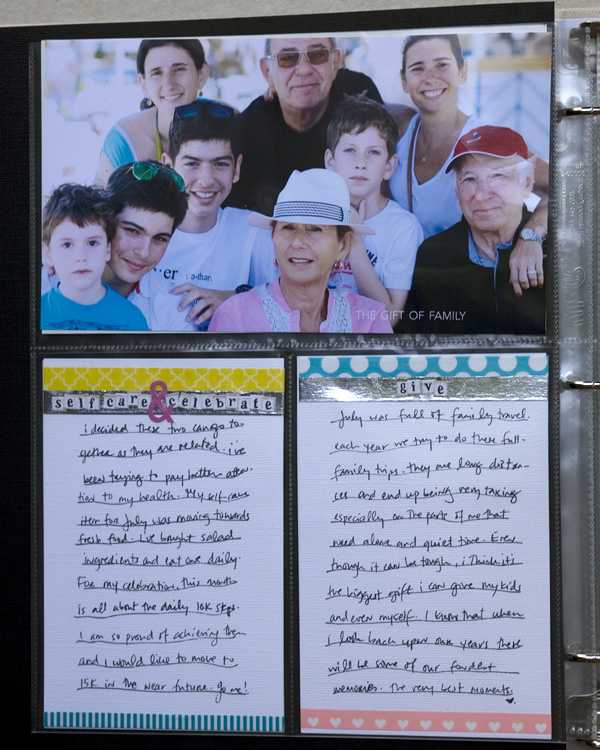 THE GIFT OF FAMILY
self care & celebrate
i decided these two can go to-
gether as they are related. i've
been trying to pay better atten-
tion to my health. My self care
item for July was moving towards
fresh food. I've bought salad
ingredients and eat one daily.
For my celebration, this month
is all about the daily 10K steps.
I am so proud of achieving them
and i would like to move to
15K in the near future. go me!
give
July was full of family travel.
each year we try to do these full-
family trips. they are long distan-
ces and end up being very taxing
especially on the parts of me that
need alone and quiet time. Even
though it can be tough, i think it's
the biggest gift i can give my kids
and even myself. I know that when
i look back upon our years these
will be some of our fondest
memories. The very best moments.